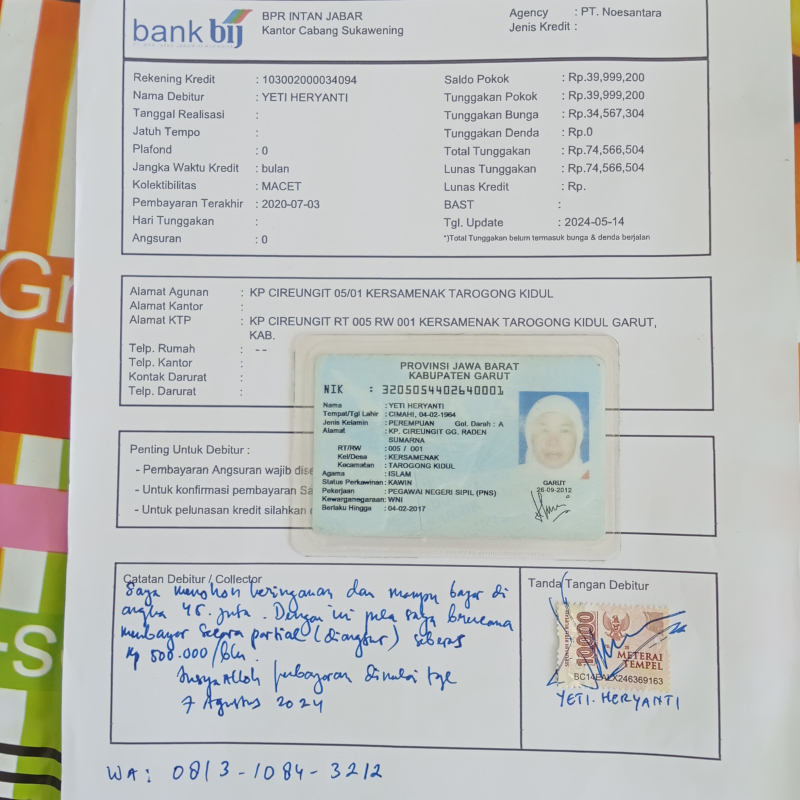 bank bij
BPR INTAN JABAR
Kantor Cabang Sukawening
Agency : PT. Noesantara
Jenis Kredit :
Rekening Kredit : 103002000034094
Nama Debitur : YETI HERYANTI
Tanggal Realisasi :
Jatuh Tempo :
Plafond : 0
Jangka Waktu Kredit : bulan
Kolektibilitas : MACET
Pembayaran Terakhir : 2020-07-03
Hari Tunggakan :
Angsuran : 0
Saldo Pokok : Rp.39,999,200
Tunggakan Pokok : Rp.39,999,200
Tunggakan Bunga : Rp.34,567,304
Tunggakan Denda : Rp.0
Total Tunggakan : Rp.74,566,504
Lunas Tunggakan : Rp.74,566,504
Lunas Kredit : Rp.
BAST :
Tgl. Update : 2024-05-14
*)Total Tunggakan belum termasuk bunga & denda berjalan
Alamat Agunan : KP CIREUNGIT 05/01 KERSAMENAK TAROGONG KIDUL
Alamat Kantor :
Alamat KTP : KP CIREUNGIT RT 005 RW 001 KERSAMENAK TAROGONG KIDUL GARUT,
KAB.
Telp. Rumah : --
Telp. Kantor :
Kontak Darurat :
Telp. Darurat :
PROVINSI JAWA BARAT
KABUPATEN GARUT
NIK : 3205054402640001
Nama : YETI HERYANTI
Tempat/Tgl Lahir : CIMAHI, 04-02-1964
Jenis Kelamin : PEREMPUAN Gol. Darah : A
Alamat : KP. CIREUNGIT GG. RADEN
SUMARNA
RT/RW : 005 / 001
Kel/Desa : KERSAMENAK
Kecamatan : TAROGONG KIDUL
Agama : ISLAM
Status Perkawinan : KAWIN
Pekerjaan : PEGAWAI NEGERI SIPIL (PNS)
Kewarganegaraan : WNI
Berlaku Hingga : 04-02-2017
GARUT
26-09-2012
Penting Untuk Debitur :
- Pembayaran Angsuran wajib dise
- Untuk konfirmasi pembayaran Sa
- Untuk pelunasan kredit silahkan
Catatan Debitur / Collector
Saya memohon keringanan dan mampu bayar di
angka 45. juta. Dengan ini pula saya berencana
membayar secara partial (diangsur) sebesar
Rp 500.000/bln.
Insya Alloh pembayaran dimulai tgl
7 Agustus 2024
Tanda Tangan Debitur
10000
METERAI
TEMPEL
BC14EALX246369163
YETI. HERYANTI
WA: 0813-1084-3212